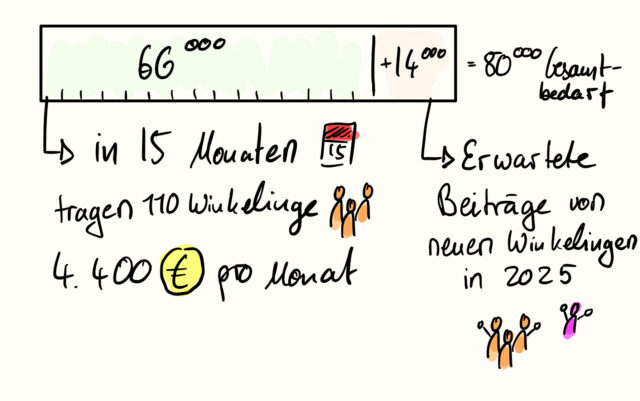 66 000
+14 000
= 80 000 Gesamt-
bedarf
in 15 Monaten
15
tragen 110 Winkelinge
4.400 € pro Monat
Erwartete
Beiträge von
neuen Winkelingen
in 2025